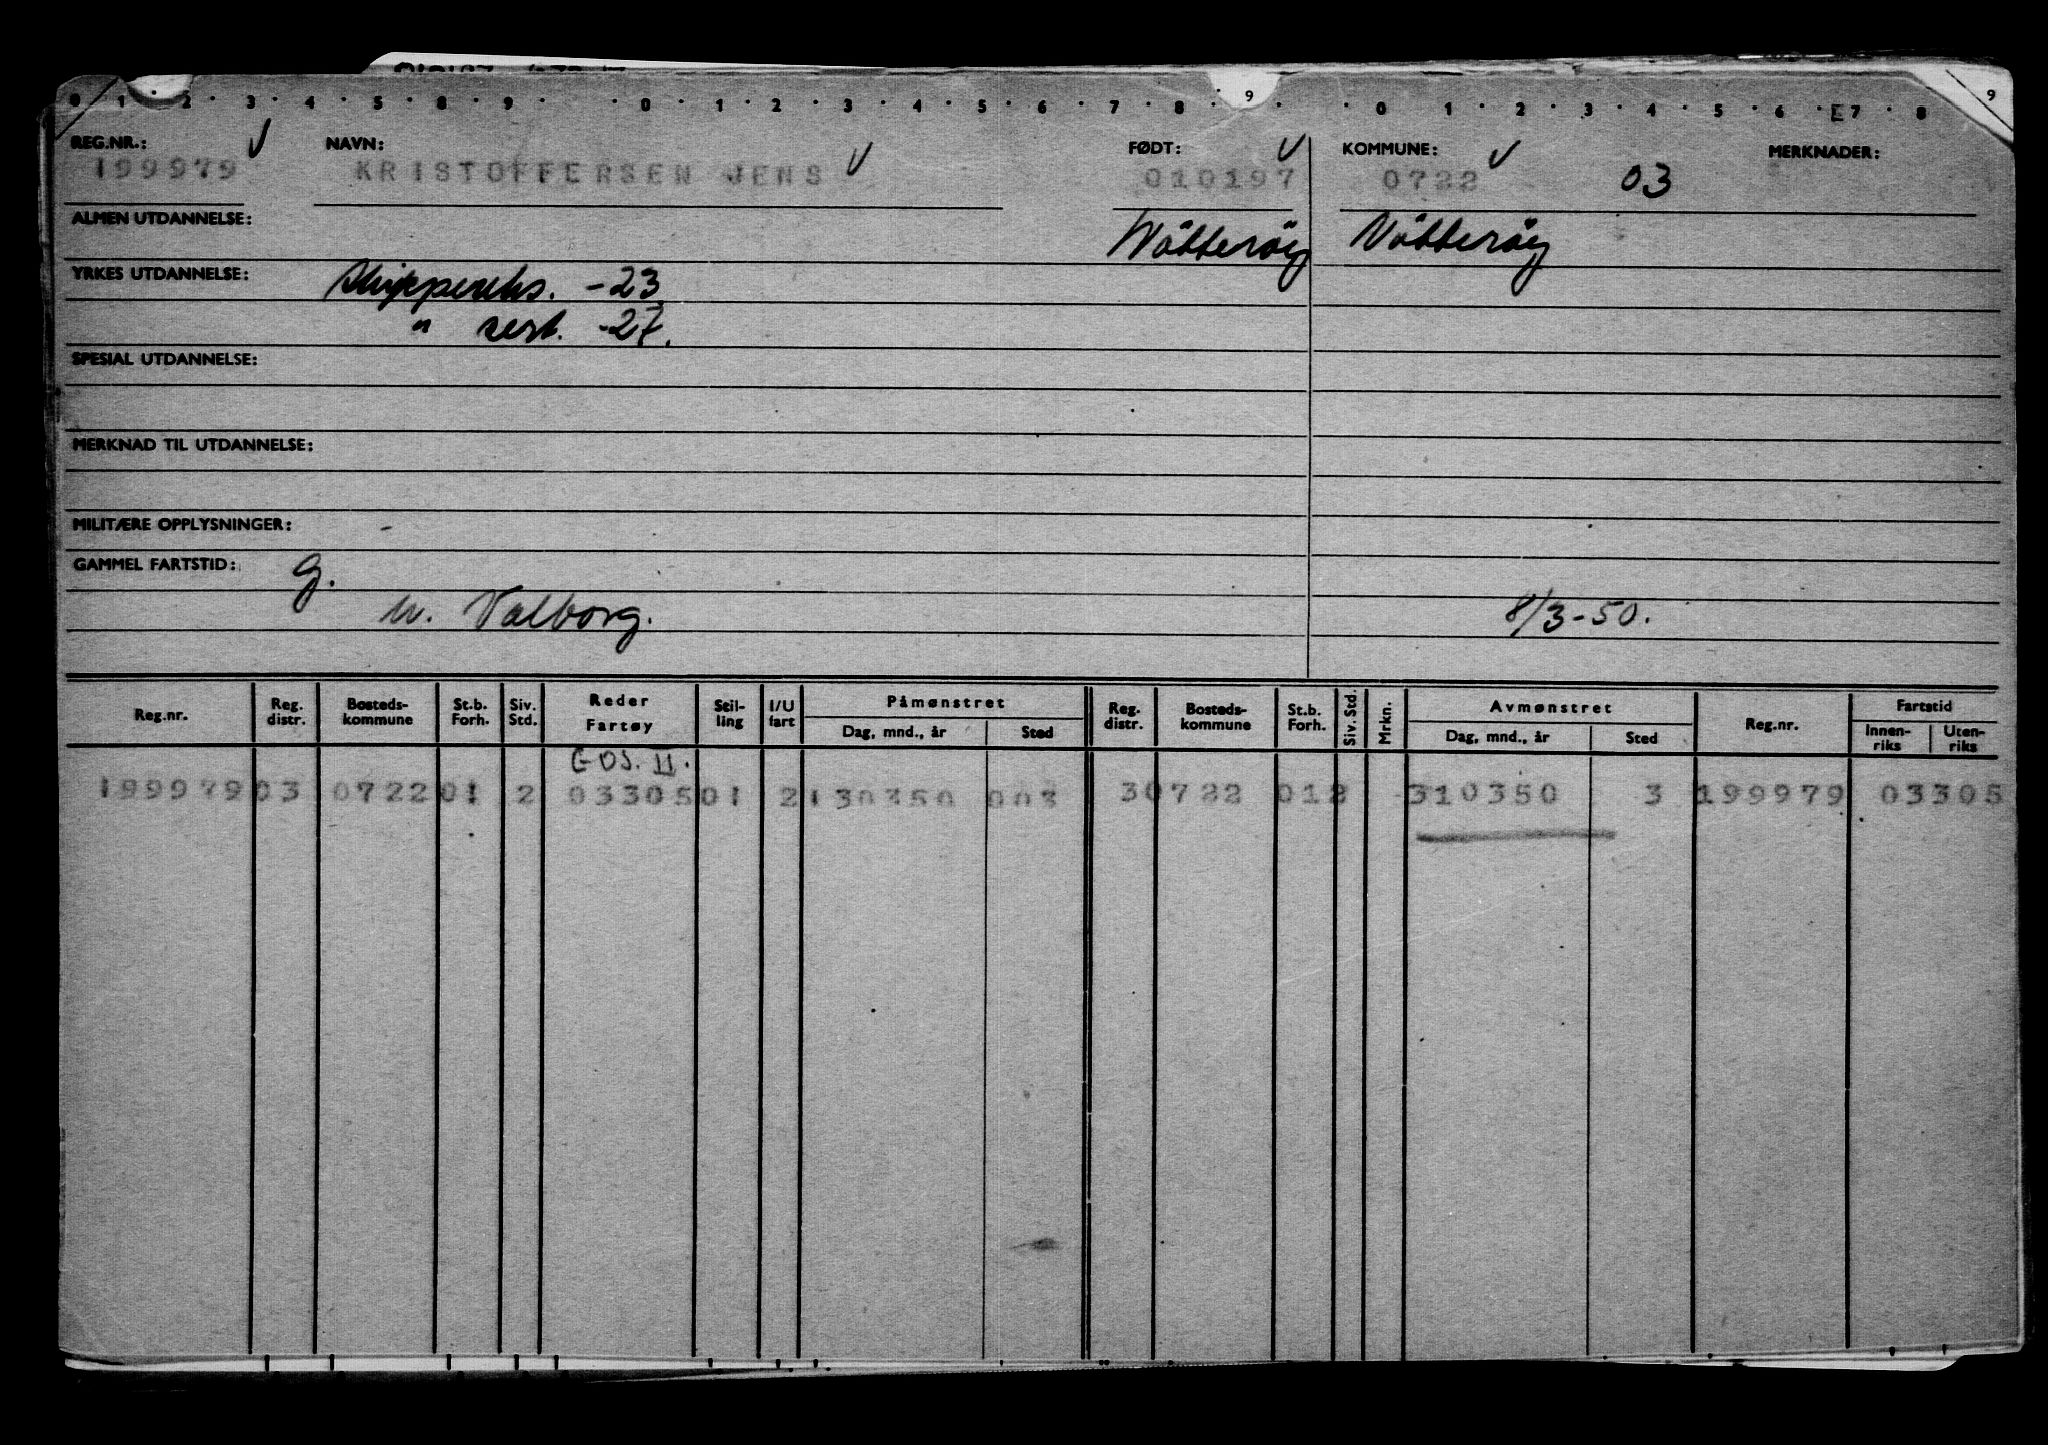 0 1 2 3 4 5 8 9 0 1 2 3 4 5 6 7 8 9 0 1 2 3 4 5 6 E7 8 9
REG.NR.: NAVN: FØDT: KOMMUNE: MERKNADER:
199979 KRISTOFFERSEN JENS 010197 0722 03
ALMEN UTDANNELSE: Nötteröy Nötteröy
YRKES UTDANNELSE: Skippereks. -23
" sert. -27.
SPESIAL UTDANNELSE:
MERKNAD TIL UTDANNELSE:
MILITÆRE OPPLYSNINGER: -
GAMMEL FARTSTID: g.
n. Valborg. 8/3-50.
Reg.nr. Reg. distr. Bosteds-kommune St.b. Forh. Siv. Std. Reder Fartøy Stil-ling I/U fart Påmønstret Dag, mnd., år Sted Reg. distr. Bosteds-kommune St.b. Forh. Siv. Std. Mrkn. Avmønstret Dag, mnd., år Sted Reg.nr. Fartstid Innen-riks Uten-riks
GOS. II.
199979 03 0722 01 2 03305 01 2 130350 003 3 0722 012 - 310350 3 199979 03305